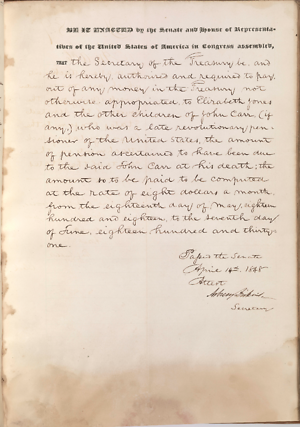 BE IT ENACTED by the Senate and House of Representa-
tives of the United States of America in Congress assembled,
THAT the Secretary of the Treasury be, and
he is hereby, authorized and required to pay,
out of any money in the Treasury not
otherwise appropriated, to Elizabeth Jones
and the other children of John Carr, (if
any,) who was a late revolutionary pen-
sioner of the United States, the amount
of pension ascertained to have been due
to the said John Carr at his death; the
amount so to be paid to be computed
at the rate of eight dollars a month,
from the eighteenth day of May, eighteen
hundred and eighteen, to the seventh day
of June, eighteen hundred and thirty-
one.
Passed the Senate
April 14th. 1848
Attest
Asbury Dickins
Secretary